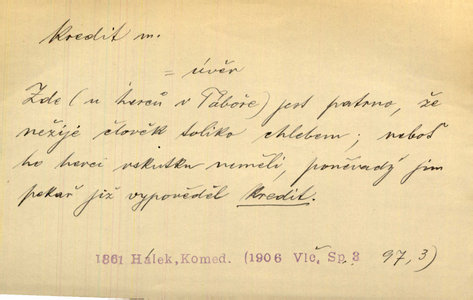 kredit m.
= úvěr
Zde (u herců v Táboře) jest patrno, že
nežije člověk toliko chlebem; neboť
ho herci vskutku neměli, poněvadž jim
pekař již vypověděl kredit.
1861 Hálek, Komed. (1906 Vlč. Sp. 3 97, 3)